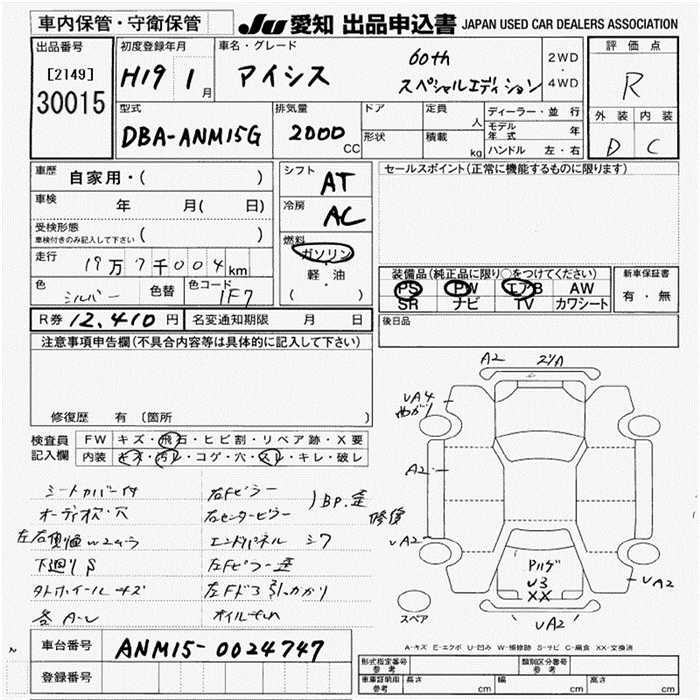 車内保管・守衛保管 JU 愛知 出品申込書 JAPAN USED CAR DEALERS ASSOCIATION
出品番号 初度登録年月 車名・グレード 評価点
[2149] H19 1月 アイシス 60th スペシャルエディション 2WD・4WD R
30015
型式 排気量 ドア 定員 人 ディーラー・並行 外装 内装
DBA-ANM15G 2000CC 形状 積載 kg モデル年式 年 D C
ハンドル 左・右
車歴 自家用・( ) シフト AT セールスポイント(正常に機能するものに限ります)
車検 年 月( 日) 冷房 AC
受検形態 車検付きのみ記入して下さい ( ) 燃料 ガソリン・軽油 ( )
走行 19万7千004km 装備品(純正品に限り○をつけてください) 新車保証書
色 シルバー 色替 色コード 1F7 PS PW エアB AW 有・無
SR ナビ TV カワシート
R券 12,410円 名変通知期限 月 日 後日品
注意事項申告欄(不具合内容等は具体的に記入して下さい)
修復歴 有 〔箇所
検査員記入欄 FW キズ・飛石・ヒビ割・リペア跡・X要
内装 キズ・汚レ・コゲ・穴・スレ・キレ・破レ
シートカバー付 右Fピラー
オーディオ欠・穴 右センターピラー )BP.歪 修復
エンドパネル シワ
下廻りS 左Fピラー歪
タトホイールキズ 左Fドア引っかかり
各A・U
A2
UA4
A2
UA2
U3
XX
UA2
UA2
スペア
車台番号 ANM15-0024747
A-キズ E-エクボ U-凹み W-補修跡 S-サビ C-腐食 XX-交換済
登録番号 型式指定番号 参考 類別区分番号 参考
車庫証明用 参考 長さ cm 幅 cm 高さ cm